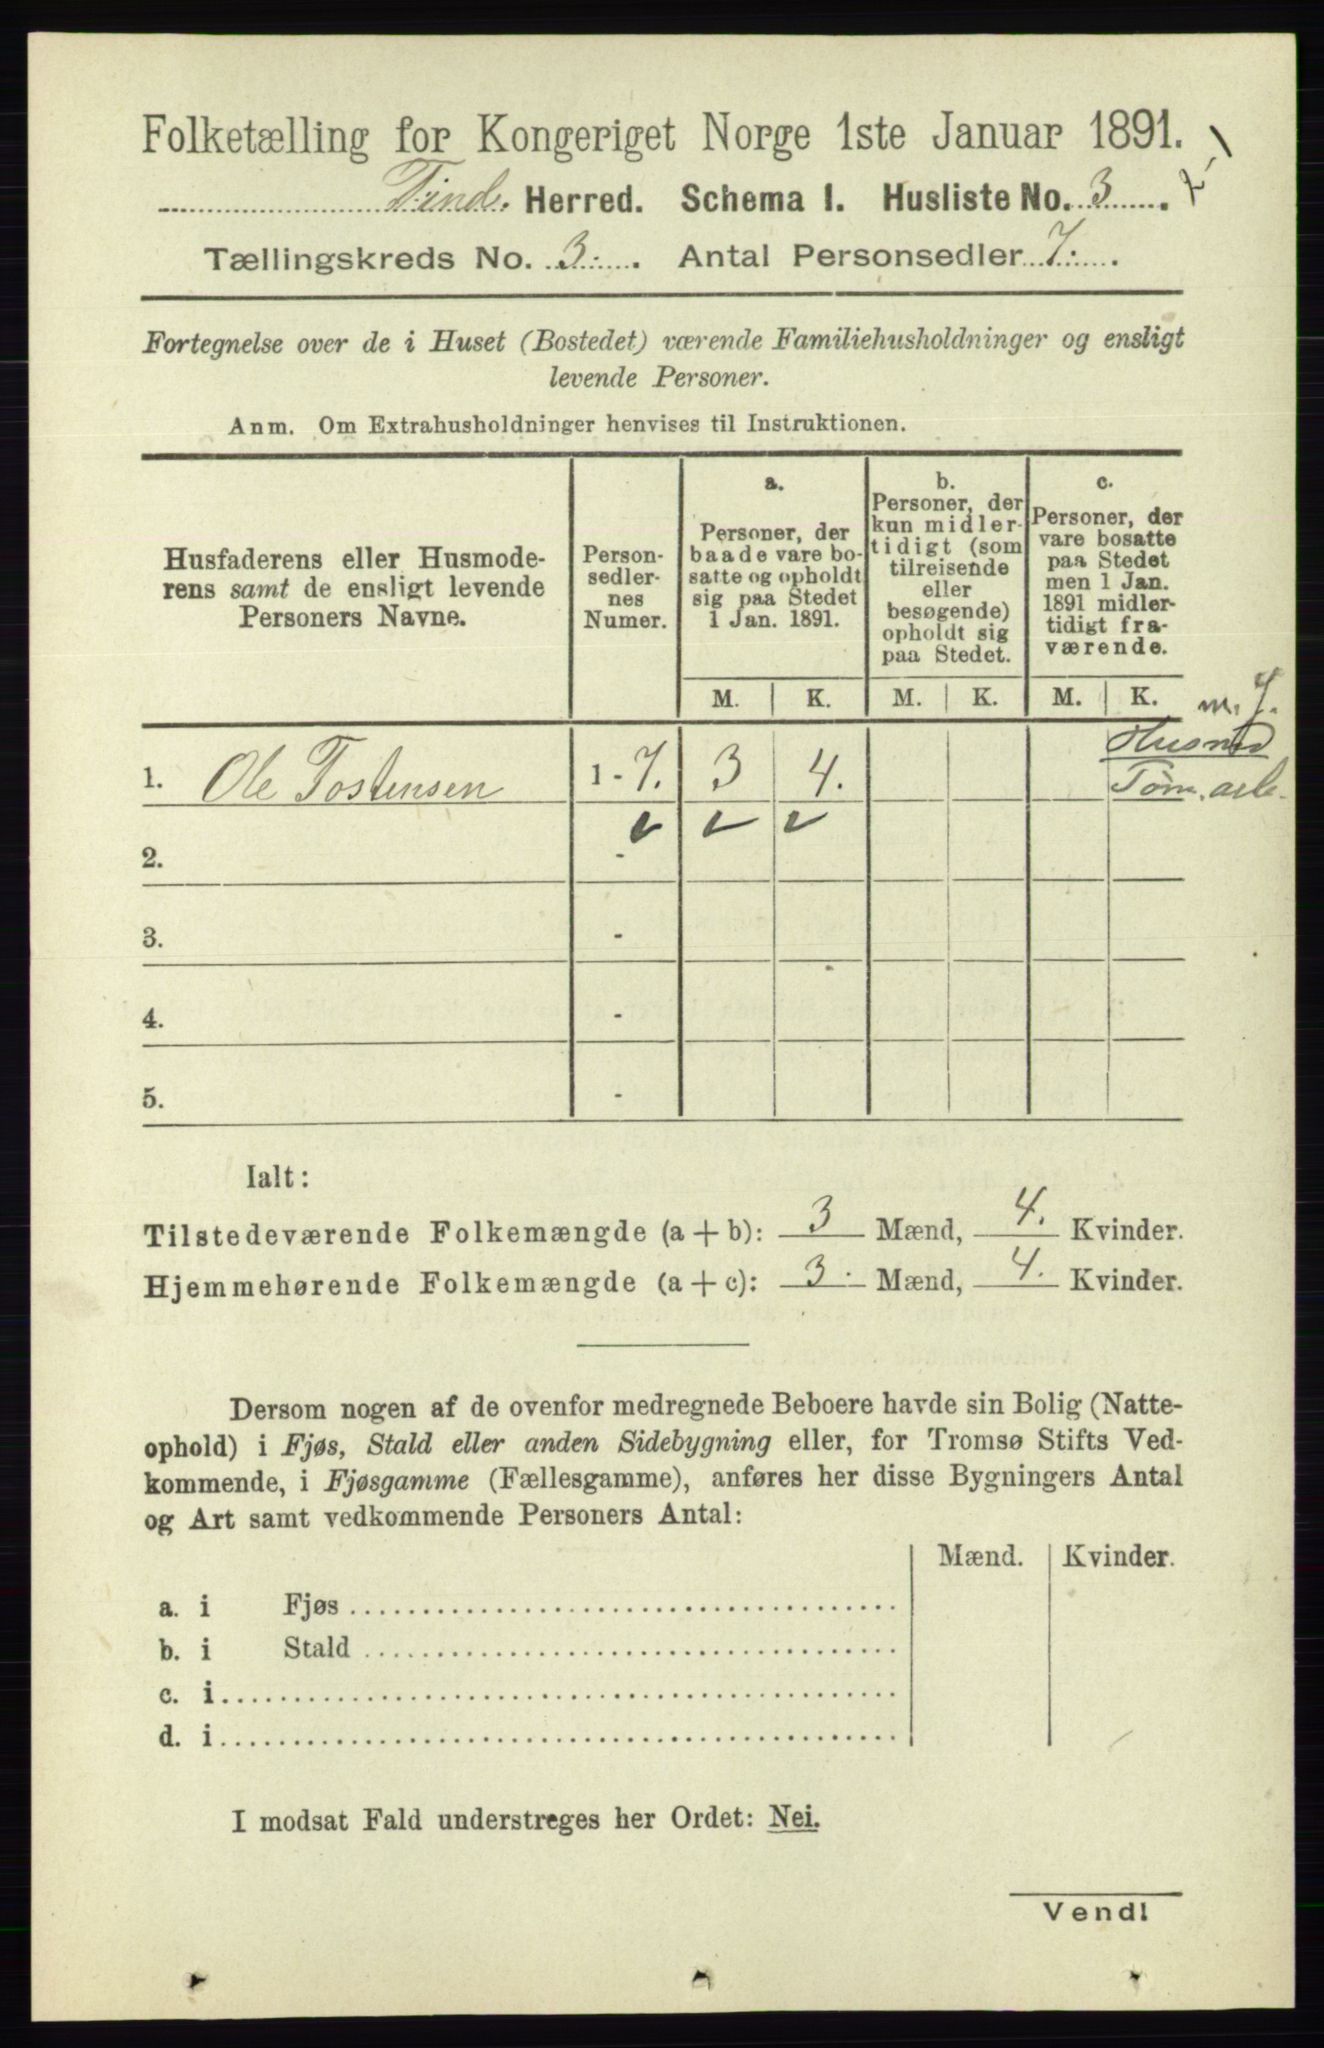 Folketælling for Kongeriget Norge 1ste Januar 1891.
Tind. Herred. Schema I. Husliste No. 3.
Tællingskreds No. 3. Antal Personsedler 7.
Fortegnelse over de i Huset (Bostedet) værende Familiehusholdninger og ensligt
levende Personer.
Anm. Om Extrahusholdninger henvises til Instruktionen.
Husfaderens eller Husmode-
rens samt de ensligt levende
Personers Navne.
Person-
sedler-
nes
Numer.
a.
Personer, der
baade vare bo-
satte og opholdt
sig paa Stedet
1 Jan. 1891.
b.
Personer, der
kun midler-
tidigt (som
tilreisende
eller
besøgende)
opholdt sig
paa Stedet.
c.
Personer, der
vare bosatte
paa Stedet
men 1 Jan.
1891 midler-
tidigt fra-
værende.
M. K. M. K. M. K.
m. J.
1. Ole Tostensen 1-7. 3 4.
Husmd
Tøm. arb.
2. -
3. -
4. -
5. -
Ialt:
Tilstedeværende Folkemængde (a + b): 3 Mænd, 4. Kvinder.
Hjemmehørende Folkemængde (a + c): 3. Mænd, 4. Kvinder.
Dersom nogen af de ovenfor medregnede Beboere havde sin Bolig (Natte-
ophold) i Fjøs, Stald eller anden Sidebygning eller, for Tromsø Stifts Ved-
kommende, i Fjøsgamme (Fællesgamme), anføres her disse Bygningers Antal
og Art samt vedkommende Personers Antal:
Mænd. Kvinder.
a. i Fjøs
b. i Stald
c. i
d. i
I modsat Fald understreges her Ordet: Nei.
Vend!